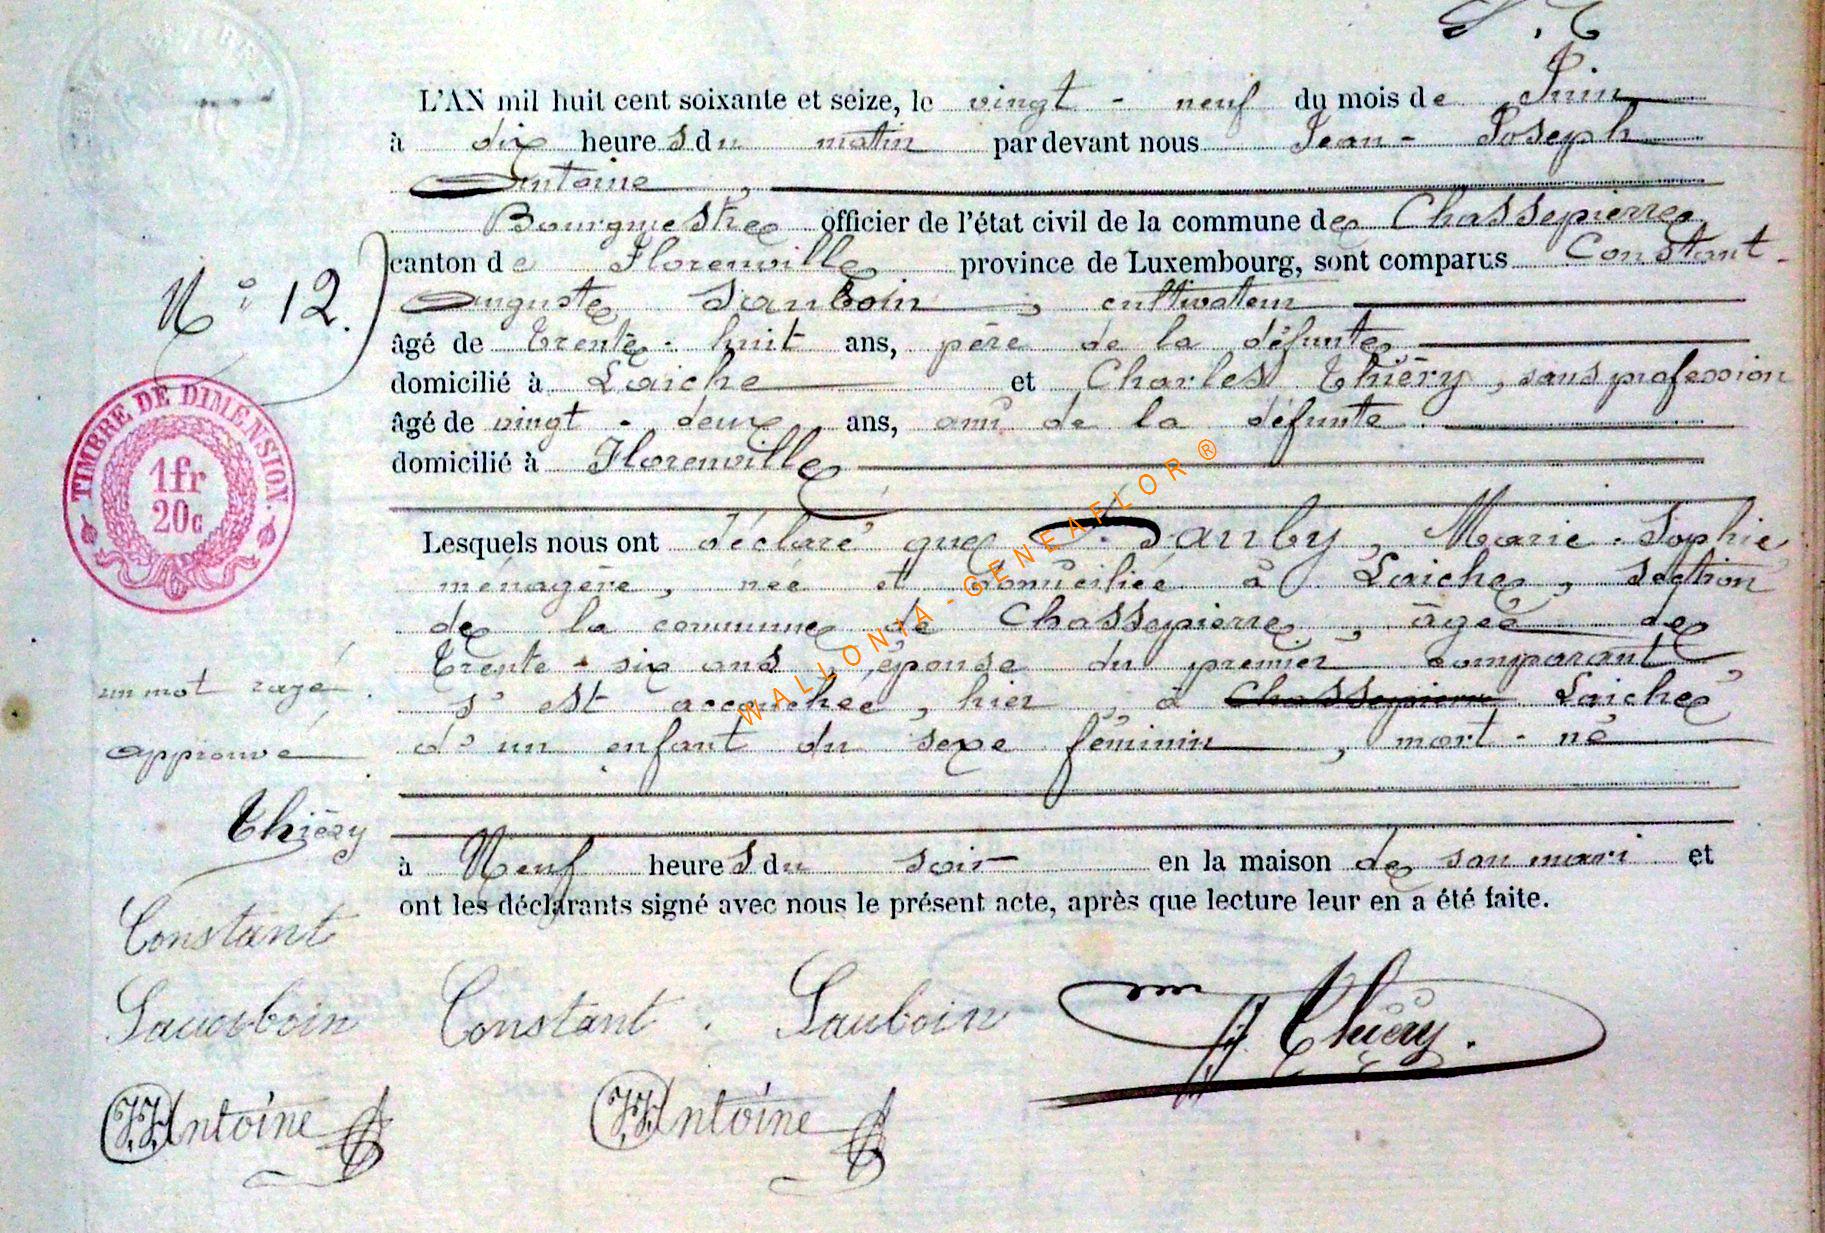 L'AN mil huit cent soixante et seize, le vingt-neuf du mois de Juin
à dix heures du matin par devant nous Jean-Joseph
Antoine,
Bourgmestre officier de l'état civil de la commune de Chassepierre
canton de Florenville province de Luxembourg, sont comparus Constant-
Auguste Sauboin, cultivateur
N° 12.
âgé de trente-huit ans, père de la défunte
domicilié à Laiche et Charles Thiéry, sans profession
âgé de vingt-deux ans, ami de la défunte
domicilié à Florenville
TIMBRE DE DIMENSION.
1fr
20c
Lesquels nous ont déclaré que Dauby, Marie-Sophie
ménagère, née et domiciliée à Laiche, section
de la commune de Chassepierre, âgée de
trente-six ans, épouse du premier comparant
s'est accouchée, hier, à Chassepierre Laiche
d'un enfant du sexe féminin, mort-né
un mot rayé
approuvé
Thiéry
Constant
Sauboin
J.J. Antoine
à Neuf heures du soir en la maison de son mari et
ont les déclarants signé avec nous le présent acte, après que lecture leur en a été faite.
Constant. Sauboin
Thiéry.
J.J. Antoine
WALLONIA-GENEAFLOR ®